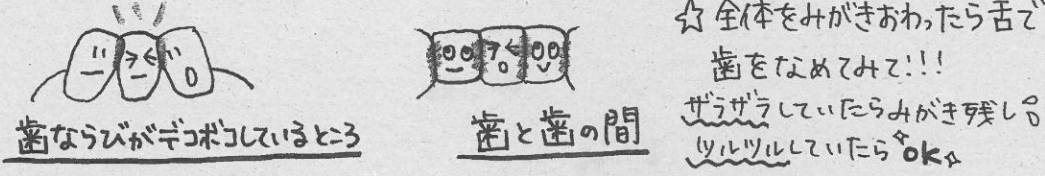 歯ならびがデコボコしているところ
歯と歯の間
☆全体をみがきおわったら舌で
歯をなめてみて!!!
ザラザラしていたらみがき残し。
ツルツルしていたらOK